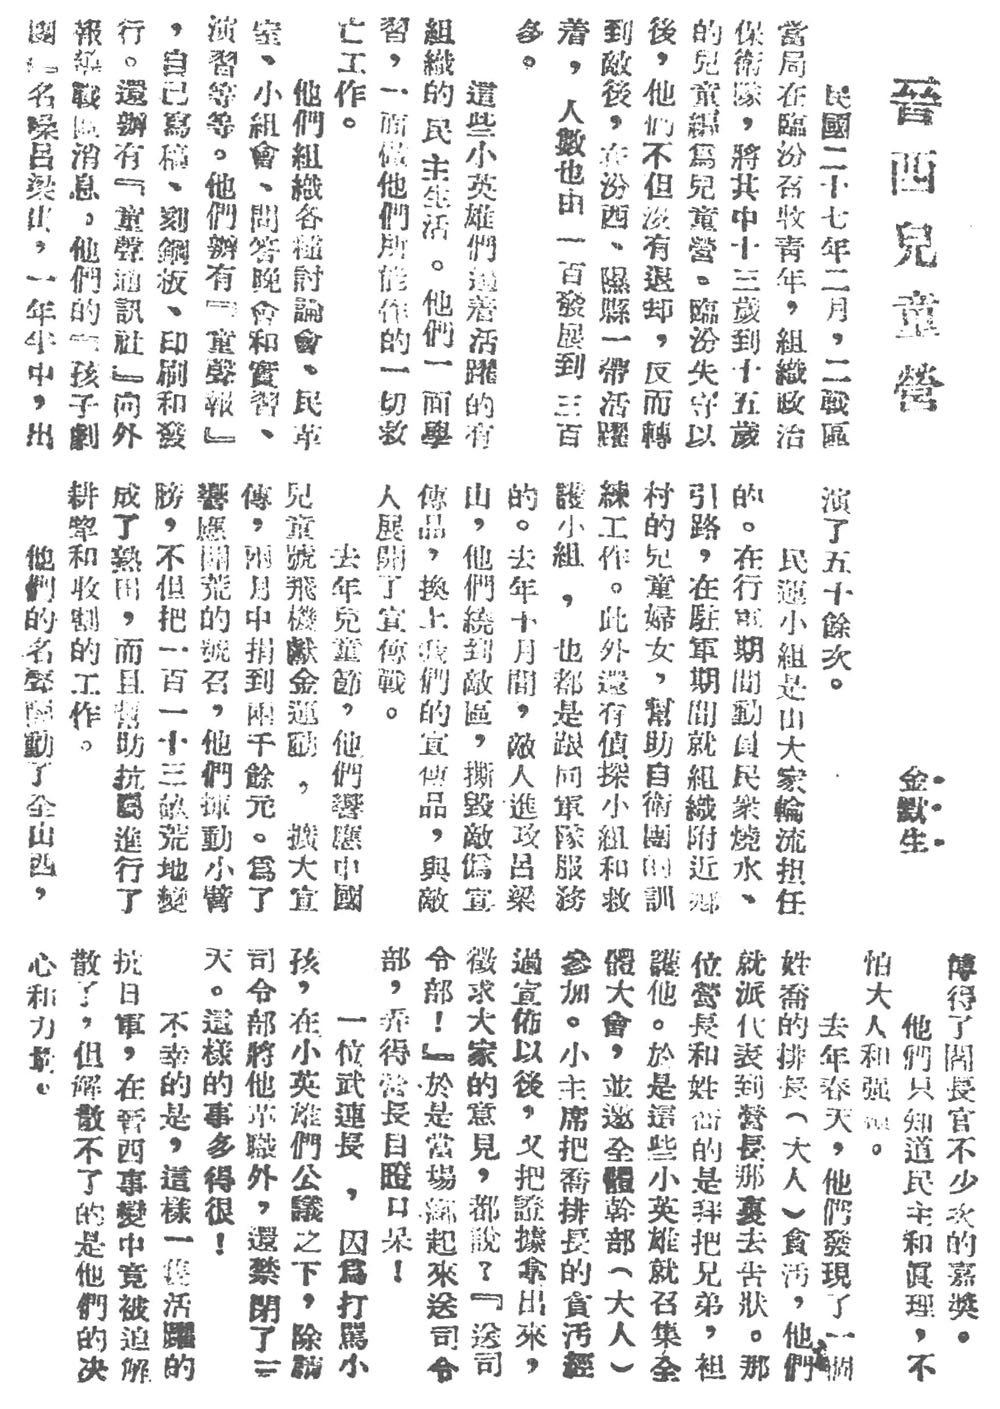 晉西兒童營
金默生
民國二十七年二月，二戰區
當局在臨汾召收青年，組織政治
保衛隊，將其中十三歲到十五歲
的兒童編爲兒童營。臨汾失守以
後，他們不但沒有退却，反而轉
到敵後，在汾西、隰縣一帶活躍
着，人數也由一百發展到三百
多。
這些小英雄們過着活躍的有
組織的民主生活。他們一面學
習，一面做他們所能作的一切救
亡工作。
他們組織各種討論會、民革
室、小組會、問答晚會和實習、
演習等等。他們辦有『童聲報』
，自己寫稿、刻鋼板、印刷和發
行。還辦有『童聲通訊社』向外
報導戰區消息。他們的『孩子劇
團』名噪呂梁山，一年半中，出
演了五十餘次。
民運小組是由大家輪流担任
的。在行軍期間動員民衆燒水、
引路，在駐軍期間就組織附近鄉
村的兒童婦女，幫助自衛團的訓
練工作。此外還有偵探小組和救
護小組，也都是跟同軍隊服務
的。去年十月間，敵人進攻呂梁
山，他們繞到敵區，撕毀敵僞宣
傳品，換上我們的宣傳品，與敵
人展開了宣傳戰。
去年兒童節，他們響應中國
兒童號飛機獻金運動，擴大宣
傳，兩月中捐到兩千餘元。爲了
響應開荒的號召，他們揮動小臂
膀，不但把一百一十三畝荒地變
成了熟田，而且幫助抗屬進行了
耕犂和收割的工作。
他們的名聲震動了全山西，
博得了閻長官不少次的嘉獎。
他們只知道民主和眞理，不
怕大人和强。
去年春天，他們發現了一個
姓喬的排長（大人）貪汚，他們
就派代表到營長那裏去告狀。那
位營長和姓喬的是拜把兄弟，袒
護他。於是這些小英雄就召集全
體大會，並邀全體幹部（大人）
參加。小主席把喬排長的貪汚經
過宣佈以後，又把證據拿出來，
徵求大家的意見，都說？『送司
令部！』於是當場綁起來送司令
部，弄得營長目瞪口呆！
一位武連長，因爲打罵小
孩，在小英雄們公議之下，除請
司令部將他革職外，還禁閉了三
天。這樣的事多得很！
不幸的是，這樣一隻活躍的
抗日軍，在晉西事變中竟被迫解
散了，但解散不了的是他們的决
心和力量。